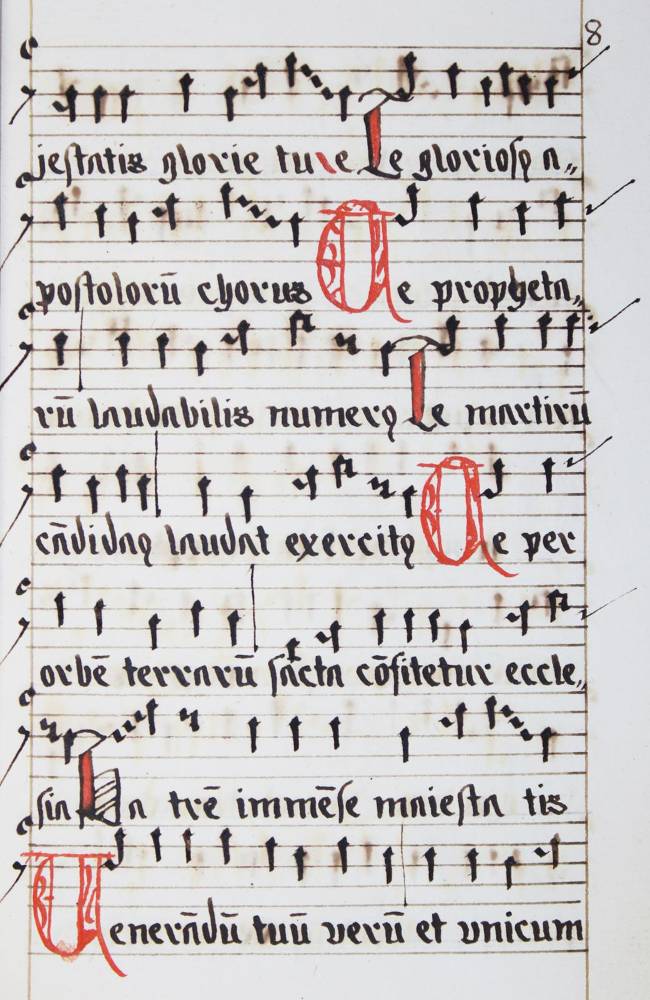 8
jestatis glorie tu e Te gloriosꝯ a„
postolorū chorus Te propheta„
rū laudabilis numerꝯ Te martirū
cādidaꝯ laudat exercitꝯ Te per
orbē terrarū sācta cōfitetur eccle„
sia Pa trē immēse maiesta tis
Venerādū tuū verū et vnicum